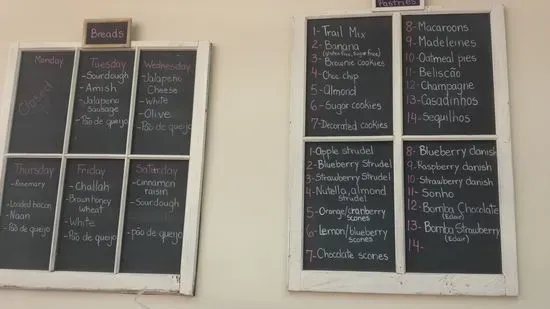 Breads
Monday
Closed
Tuesday
- Sourdough
- Amish
- Jalapeno
Sausage
- Pão de queijo
Wednesday
- Jalapeno
Cheese
- White
- Olive
- Pão de queijo
Thursday
- Rosemary
- Loaded bacon
- Naan
- Pão de queijo
Friday
- Challah
- Brown honey
wheat
- White
- Pão de queijo
Saturday
- Cinnamon
raisin
- Sourdough
- pão de queijo
Pastries
1- Trail Mix
2- Banana
(gluten free, sugar free)
3- Brownie cookies
4- Choc chip
5- Almond
6- Sugar cookies
7- Decorated cookies
8- Macaroons
9- Madeleines
10- Oatmeal pies
11- Beliscão
12- Champagne
13- Casadinhos
14- Sequilhos
1- Apple strudel
2- Blueberry Strudel
3- Strawberry Strudel
4- Nutella, almond
strudel
5- Orange/cranberry
scones
6- Lemon/blueberry
scones
7- Chocolate scones
8- Blueberry danish
9- Raspberry danish
10- Strawberry danish
11- Sonho
12- Bomba Chocolate
(Eclair)
13- Bomba Strawberry
(Eclair)
14-